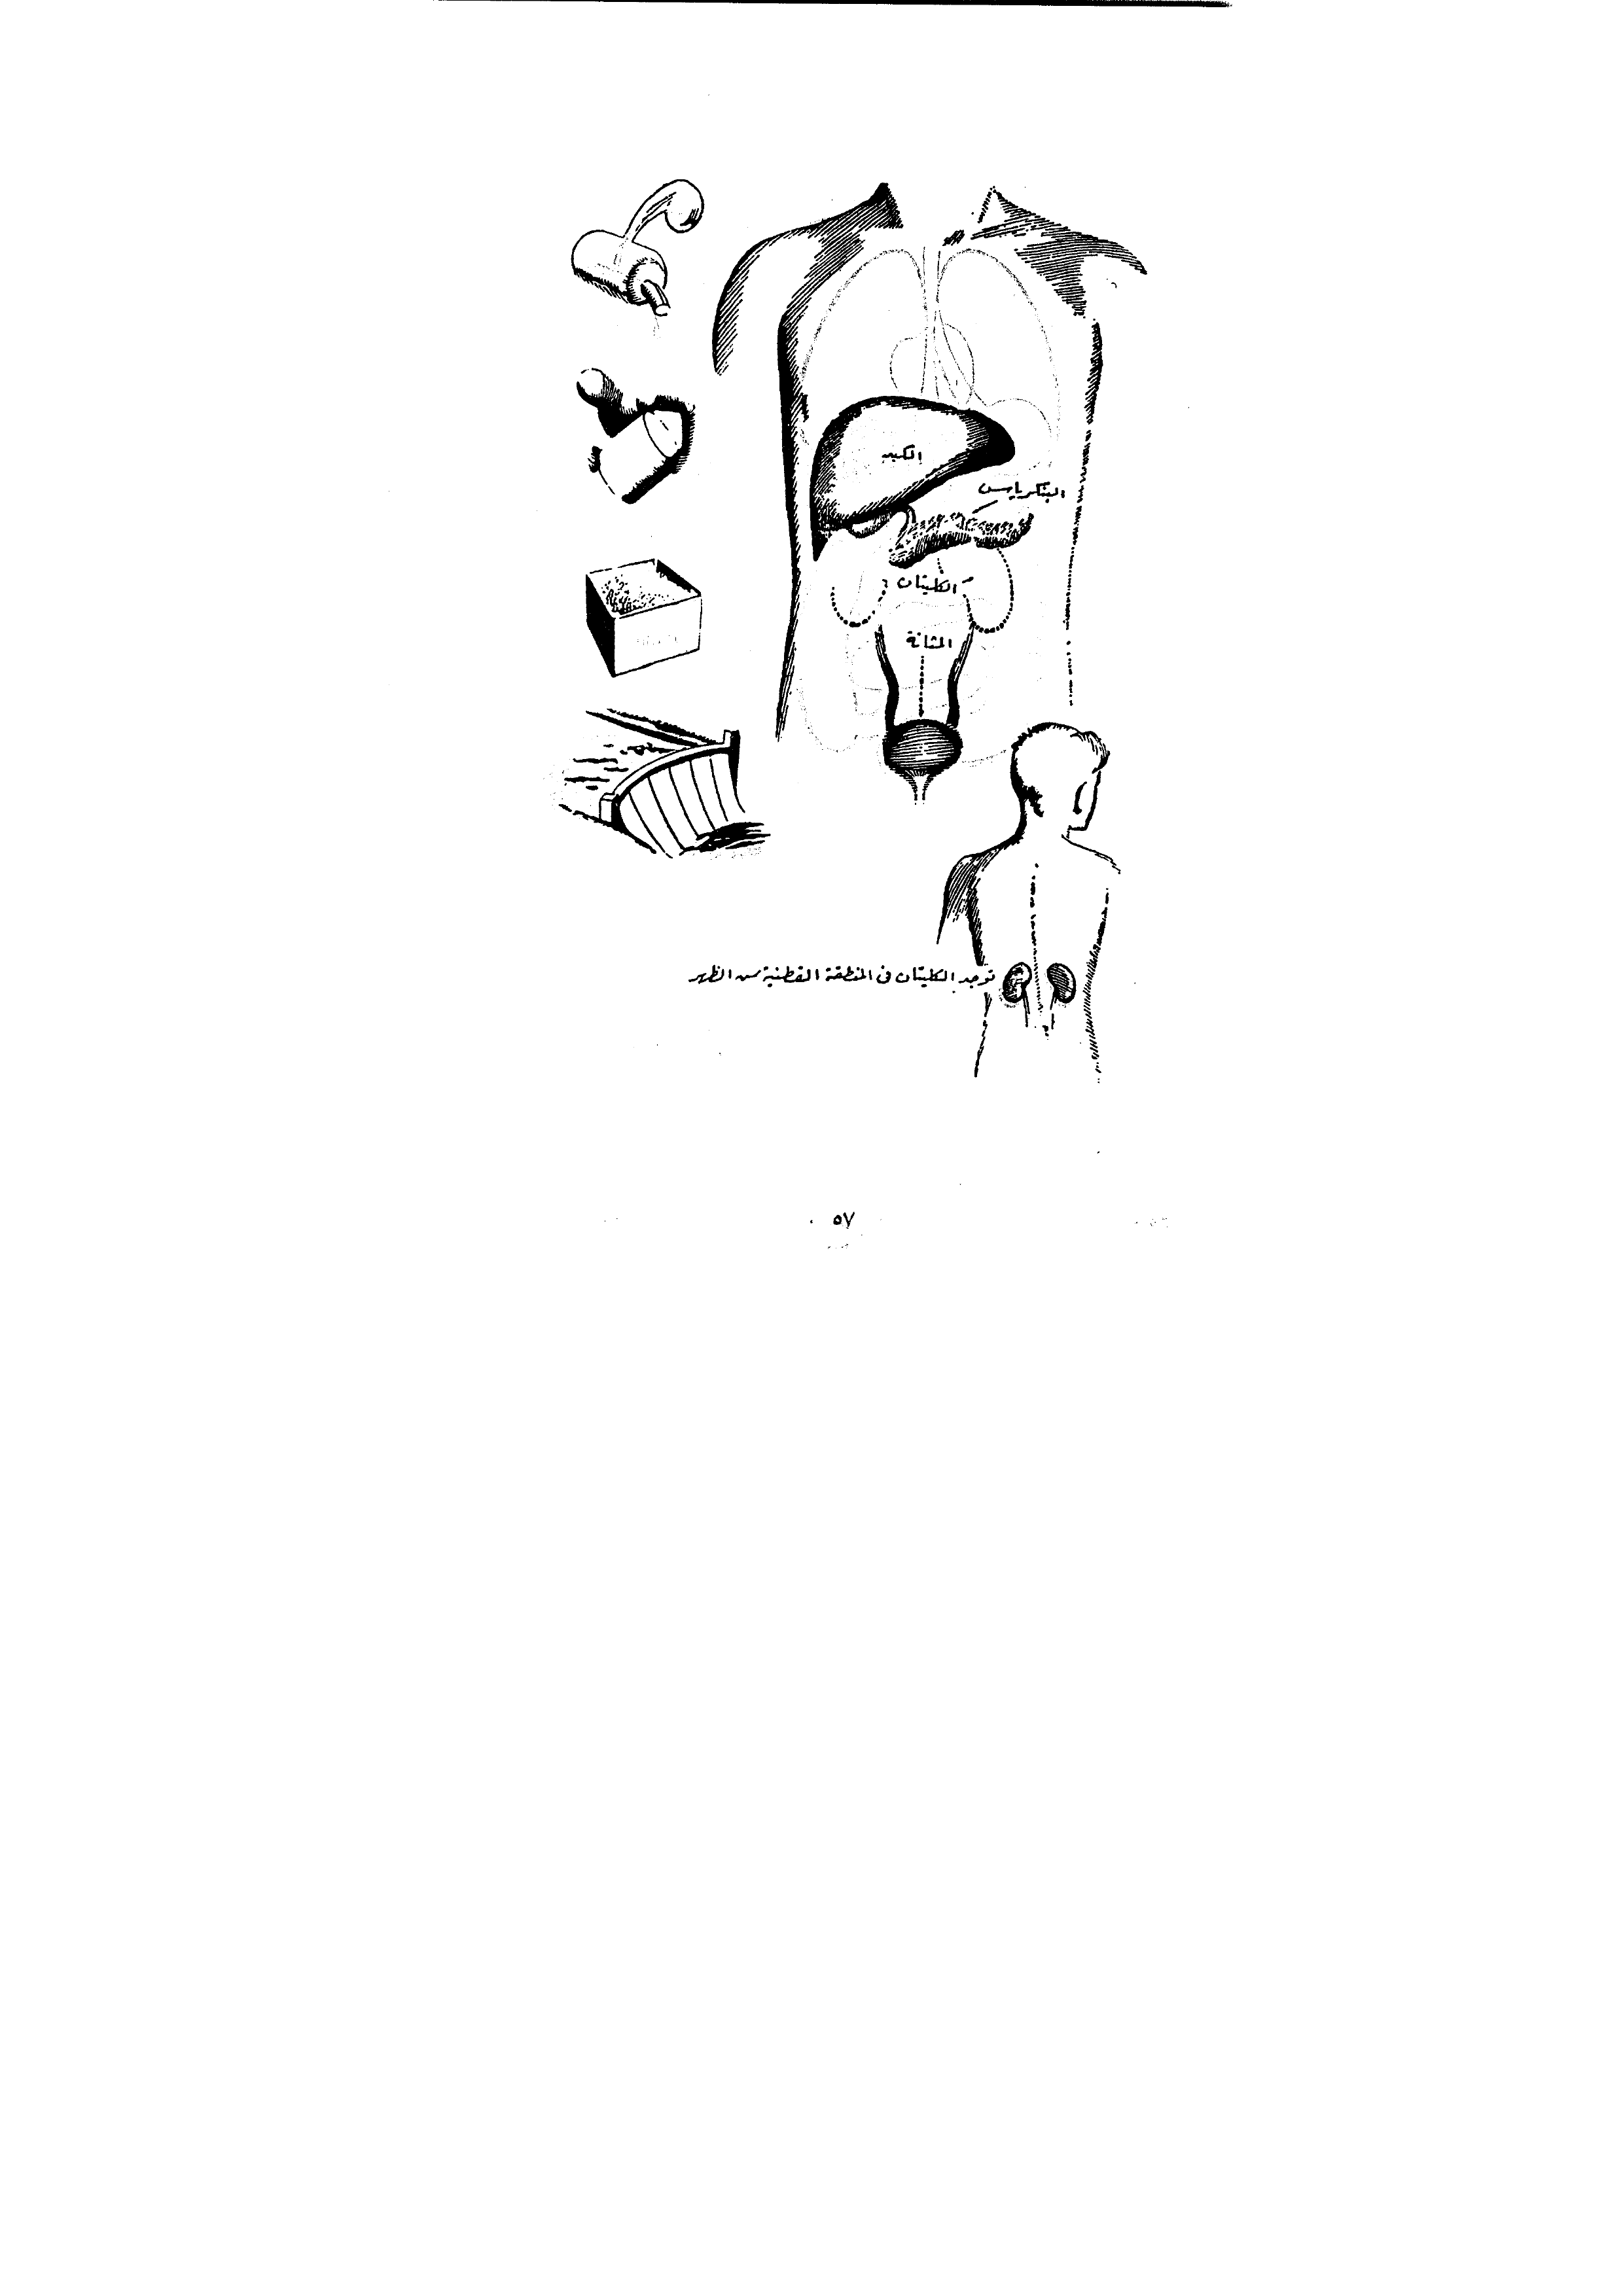 الكبد
البنكرياس
الكليتان
المثانة
توجد الكليتان فى المنطقة القطنية من الظهر
٥٧